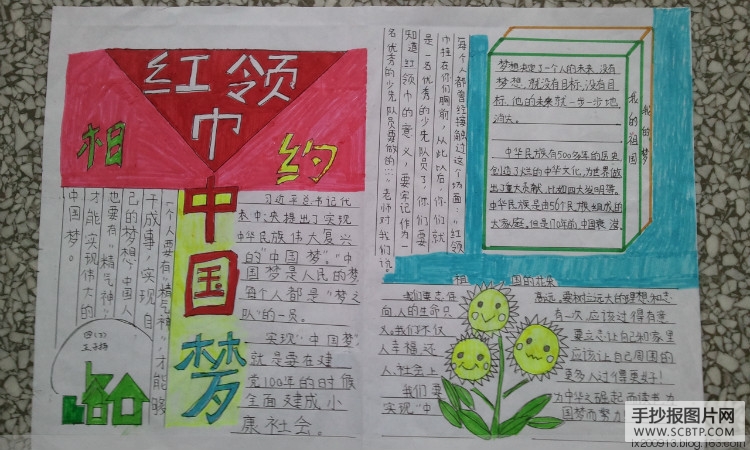 红领
巾
相
约
中
国
梦
一个人要有“精气神”，才能够
干成事，实现自
己的梦想，中国人
也要有“精气神”
才能实现伟大的
中国梦。
习近平总书记代
表中央提出了实现
中华民族伟大复兴
的“中国梦”。“中
国梦是人民的梦
每个人都是“梦之
队”的一员。
实现“中国梦”
就是要在建
党100年的时候
全面建成小
康社会。
每个人都曾经接触过这个场面：“红领
巾挂在你们胸前，从此以后，你们就
是一名优秀的少先队员了，你们要
知道红领巾的意义，要牢记作为一
名优秀的少先队员要做的……”老师对我们说
梦想决定了一个人的未来，没有
梦想，就没有目标，没有目
标，他的未来就一步一步地
消失。
中华民族有5000多年的历史
创造了灿烂的中华文化，为世界做
出了重大贡献，比如四大发明等。
中华民族是由56个民族组成的
大家庭，但是170年的中国衰
我的祖国
我的梦
我们要志
高远，要树立远大的理想和志
向，人的生命只
有一次，应该过得有意
义，我们不仅
要立志让自己和家里
人幸福，还
应该让自己周围的
人，社会上
更多人过得更美好！
我们要
为中华之崛起而读书，为
实现“中
国梦而努力
手抄报图片网
WWW.SCBTP.COM